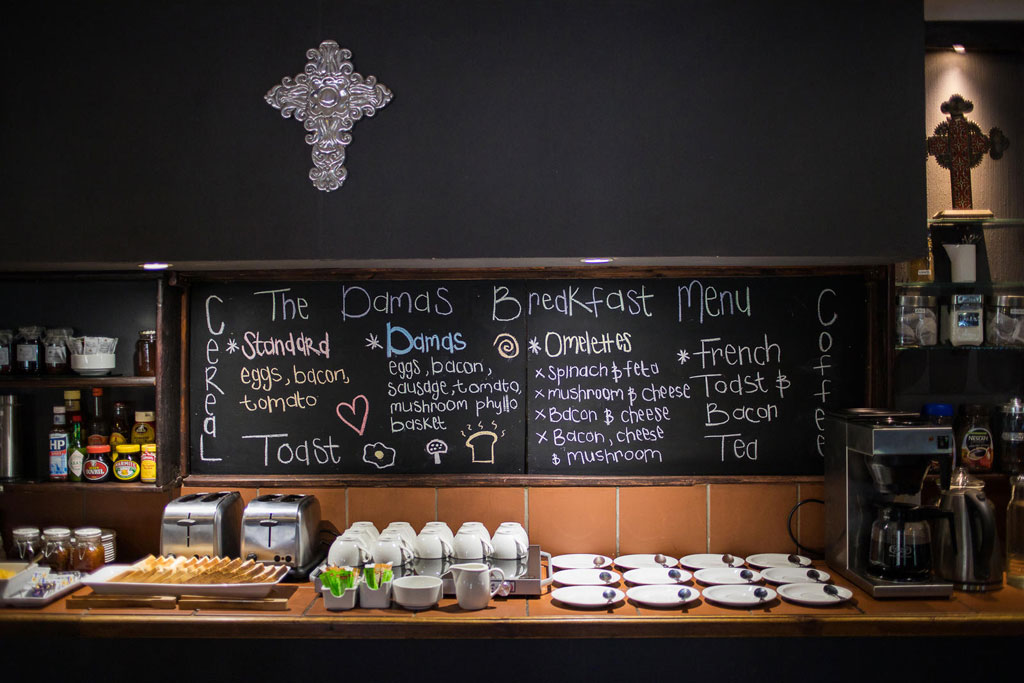 The Damas Breakfast Menu
Cereal
*Standard
eggs, bacon,
tomato
Toast
*Damas
eggs, bacon,
sausage, tomato,
mushroom phyllo
basket
*Omelettes
x spinach & feta
x mushroom & cheese
x Bacon & cheese
x Bacon, cheese
& mushroom
*French
Toast &
Bacon
Tea
Coffee
HP
BOVRIL
MARMITE
NESCAFÉ